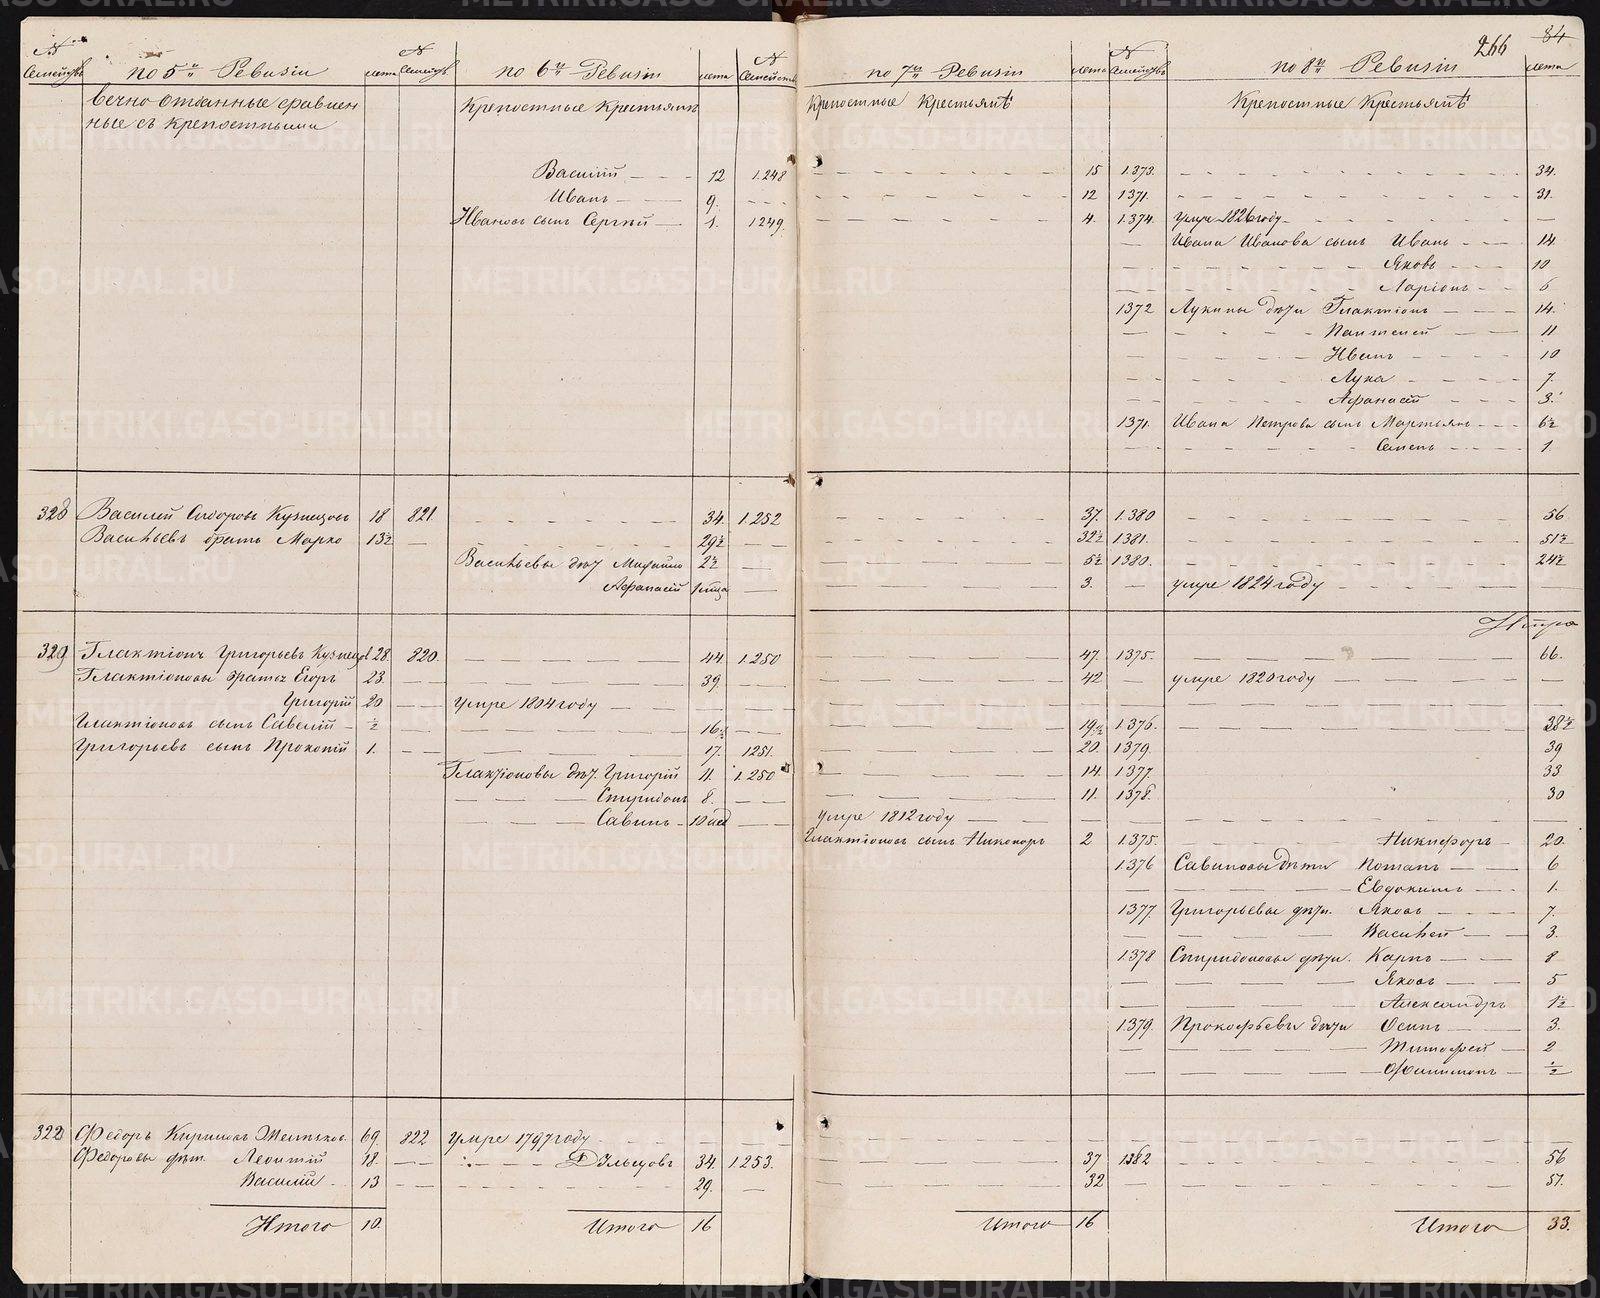 266 84
№ Семействъ по 5й Ревизiи лета № Семейств по 6й Ревизiи лета № Семейств по 7й Ревизiи лета № Семействъ по 8й Ревизiи лета
вечно отданные сравнен Крепостные Крестьяня Крепостные Крестьянѣ Крепостные Крестьянѣ
ные съ крепостными
Василий 12 1.248 15 1373. 34.
Иванъ 9. 12 1371. 31.
Ивановъ сынъ Сергѣй 1. 1249. 4. 1.374. умре 1826 году
Ивана Иванова сынъ Иванъ 14
Яковъ 10
Ларiонъ 6
1372 Лукины дѣти Глактiонъ 14.
Пантелей 11
Иванъ 10
Лука 7.
Афанасей 3.
1371. Ивана Петрова сынъ Мартьянъ 6½
Семенъ 1.
320 Василей Сидоровъ Кузнецовъ 18 821. 34. 1.252 37. 1.380 56
Васильевъ братъ Марко 13½ 29½ 32½ 1381. 51½
Васильевы дѣт Михайло 2½ 5½ 1380. 24½
Афанасей 3. умре 1824 году
329 Глактiонъ Григорьевъ Кузнецов 28. 820. 44. 1.250 47. 1375. 66.
Глактiоновы братья Егоръ 23 39. 42 умре 1820 году
Григорiй 20 умре 1804 году
Глактiоновъ сынъ Савелiй ½ 16½ 19½ 1.376. 38½
Григорьевъ сынъ Прокопiй 1. 17. 1251. 20. 1379. 39
Глактiоновы дѣт. Григорiй 11. 1.250 14. 1377. 33
Спиридонъ 8. 11. 1378. 30
Савинъ 10 нед умре 1812 году
Глактiоновъ сынъ Никоноръ 2 1.375. Никифоръ 20.
1.376 Савиновы дѣти Потапъ 6
Евдокимъ 1.
1377. Григорьевы дѣти. Яковъ 7.
Василей 3.
1378 Спиридоновы дѣти. Карпъ 8
Яковъ 5
Александръ 1½
1.379. Прокофьевы дѣти Осипъ 3.
Тимофей 2
Филимонъ ½
322 Федоръ Кириловъ 69. 822 умре 1797 году
Федоровы дѣти Леонтiй 18. 34. 1.253. 37 1382 56
Василiй 13 29. 32 51.
Итого 10. Итого 16 Итого 16 Итого 33.